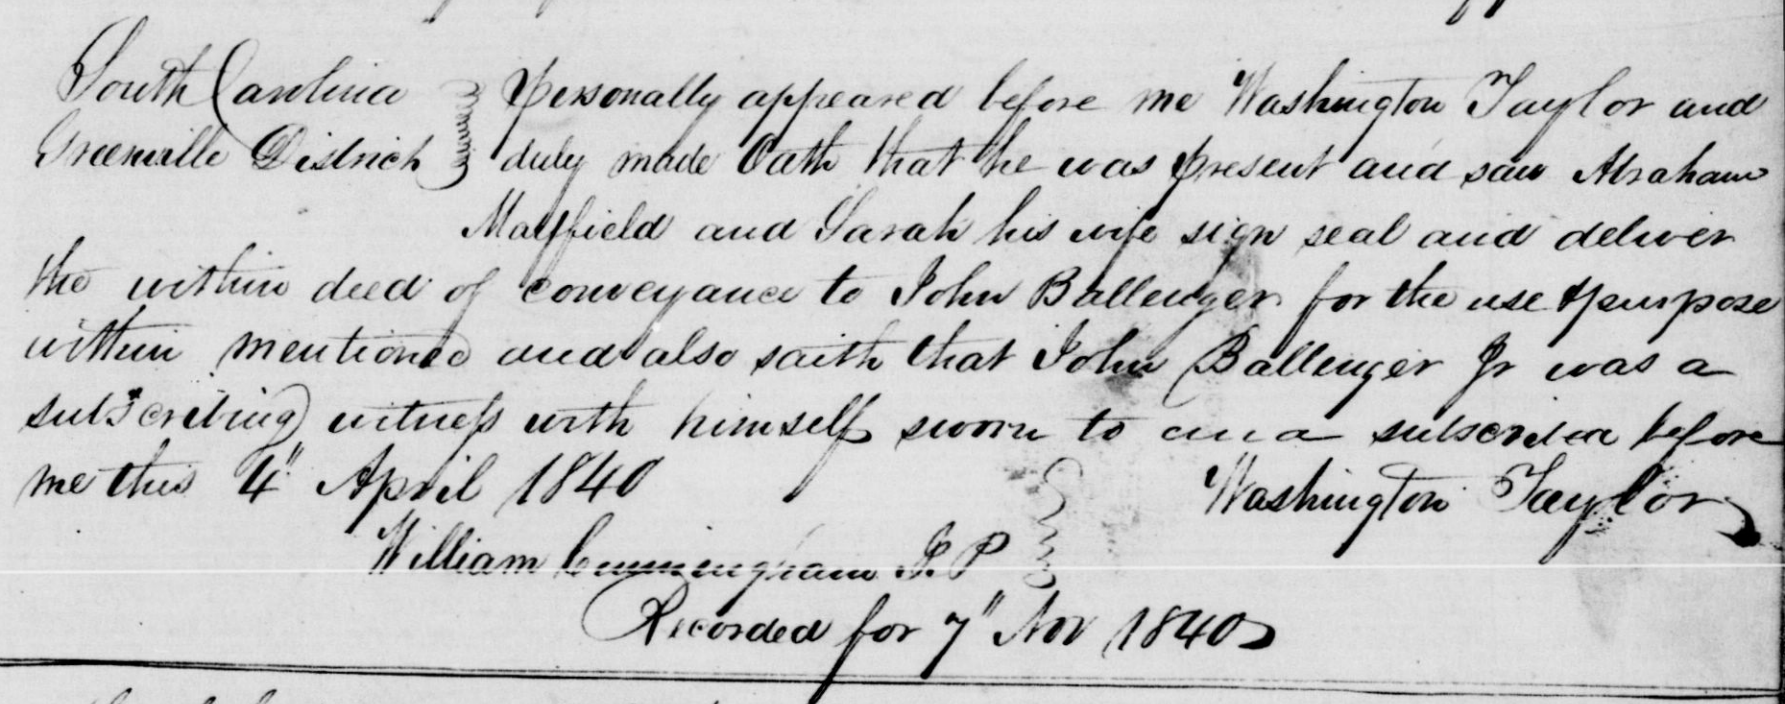 South Carolina Personally appeared before me Washington Taylor and
Greenville District duly made Oath that he was present and saw Abraham
Mayfield and Sarah his wife sign seal and deliver
the within deed of conveyance to John Ballenger for the use & purpose
within mentioned and also saith that John Ballenger Jr was a
subscribing witness with himself sworn to and subscribed before
me this 4" April 1840 Washington Taylor
William Cunningham J. P
Recorded for 7" Nov 1840